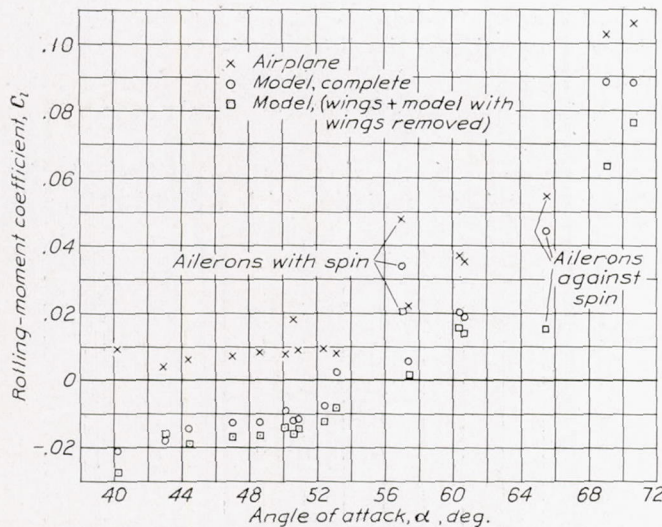 .10
.08
.06
.04
.02
0
-.02
Rolling-moment coefficient, C_l
× Airplane
○ Model, complete
□ Model, (wings + model with
wings removed)
Ailerons with spin
Ailerons
against
spin
40 44 48 52 56 60 64 68 72
Angle of attack, α, deg.